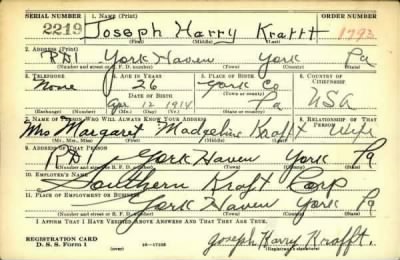 SERIAL NUMBER 1. NAME (Print) ORDER NUMBER
2219 Joseph Harry Krafft 1793
(First) (Middle) (Last)
2. ADDRESS (Print)
RD1 York Haven York Pa
(Number and street or R. F. D. number) (Town) (County) (State)
3. TELEPHONE 4. AGE IN YEARS 5. PLACE OF BIRTH 6. COUNTRY OF CITIZENSHIP
None 26 York Co
DATE OF BIRTH (Town or county)
Apr 12 1914 Pa USA
(Exchange) (Number) (Mo.) (Day) (Yr.) (State or country)
7. NAME OF PERSON WHO WILL ALWAYS KNOW YOUR ADDRESS 8. RELATIONSHIP OF THAT PERSON
Mrs Margaret Madgeline Krafft Wife
(Mr., Mrs., Miss) (First) (Middle) (Last)
9. ADDRESS OF THAT PERSON
RD1 York Haven York Pa
(Number and street or R. F. D. number) (Town) (County) (State)
10. EMPLOYER'S NAME
Southern Kraft Corp
11. PLACE OF EMPLOYMENT OR BUSINESS
York Haven York Pa
(Number and street or R. F. D. number) (Town) (County) (State)
I AFFIRM THAT I HAVE VERIFIED ABOVE ANSWERS AND THAT THEY ARE TRUE.
REGISTRATION CARD
D. S. S. Form 1 16—17105 Joseph Harry Krafft.
(Registrant's signature)